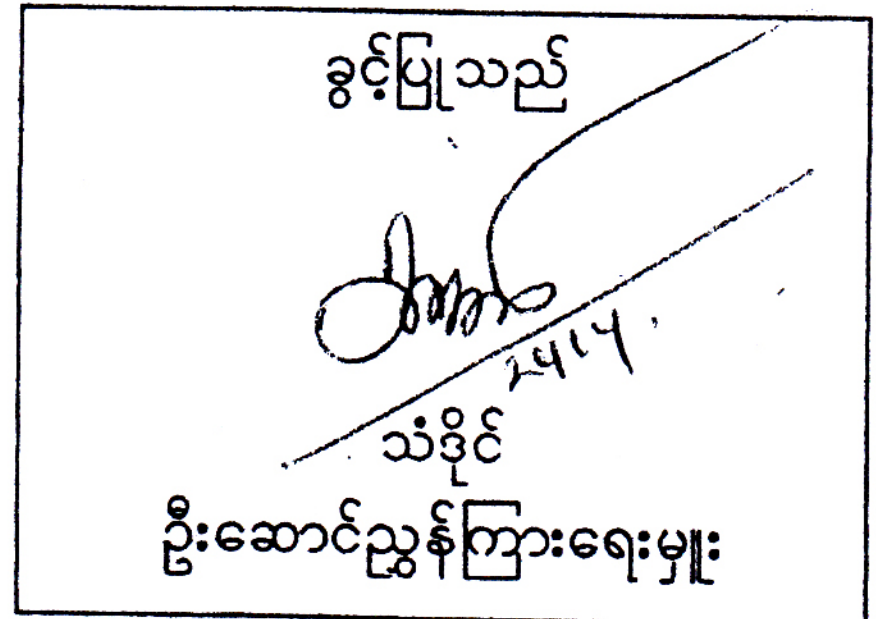 ခွင့်ပြုသည်
သံဒိုင်
ဦးဆောင်ညွှန်ကြားရေးမှူး